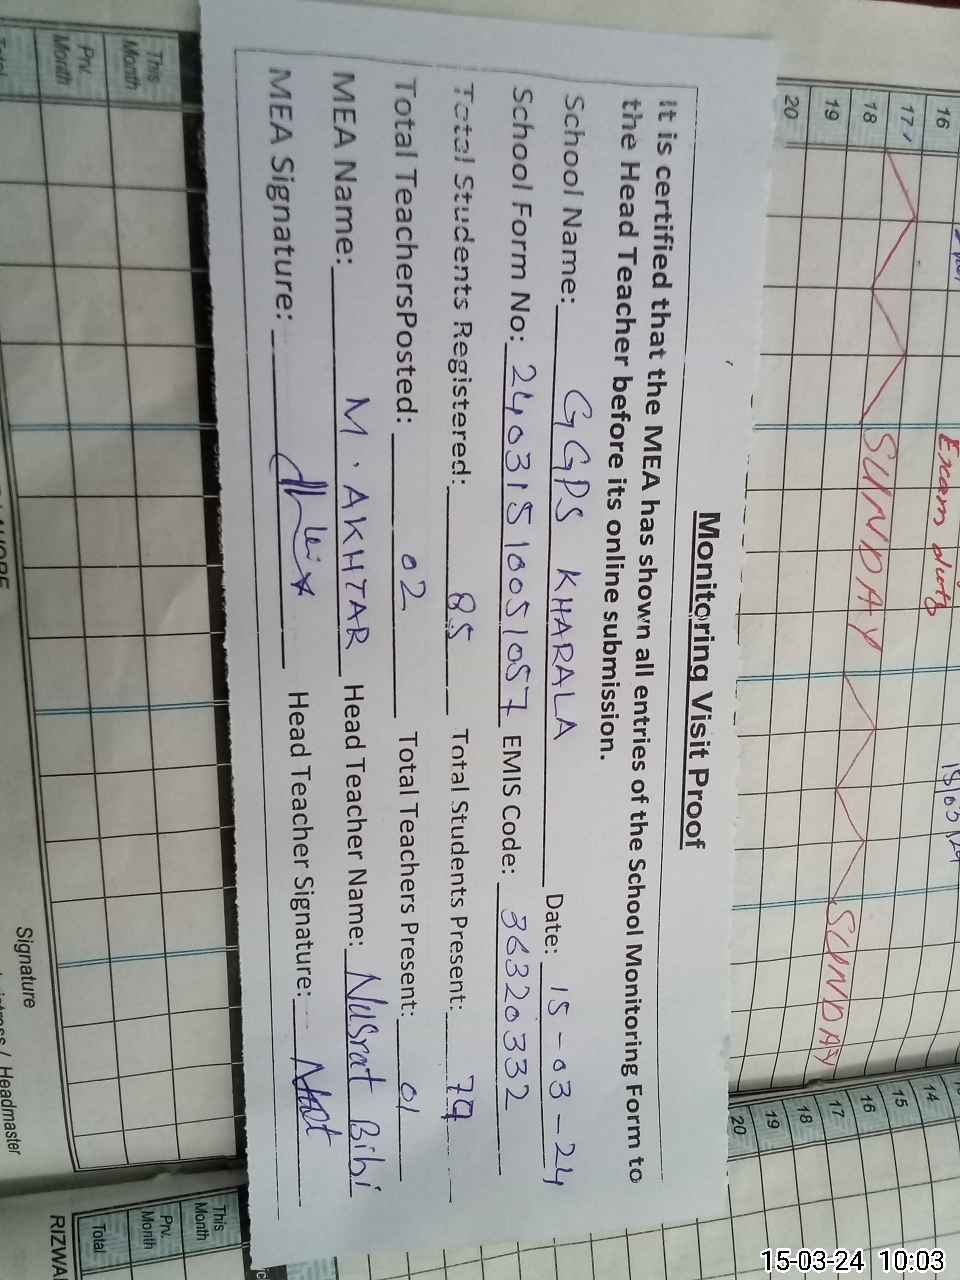 Monitoring Visit Proof
It is certified that the MEA has shown all entries of the School Monitoring Form to
the Head Teacher before its online submission.
School Name: GGPS KHARALA Date: 15-03-24
School Form No: 24031510051057 EMIS Code: 36320332
Total Students Registered: 85 Total Students Present: 79
Total TeachersPosted: 02 Total Teachers Present: 01
MEA Name: M. AKHTAR Head Teacher Name: Nusrat Bibi
MEA Signature: Head Teacher Signature:
16
17
18
19
20
SUNDAY
SUNDAY
Exam duty
14
15
16
17
18
19
20
This Month
Prv. Month
Total
Signature
/ Headmaster
This Month
Prv. Month
Total
RIZWA
15-03-24 10:03